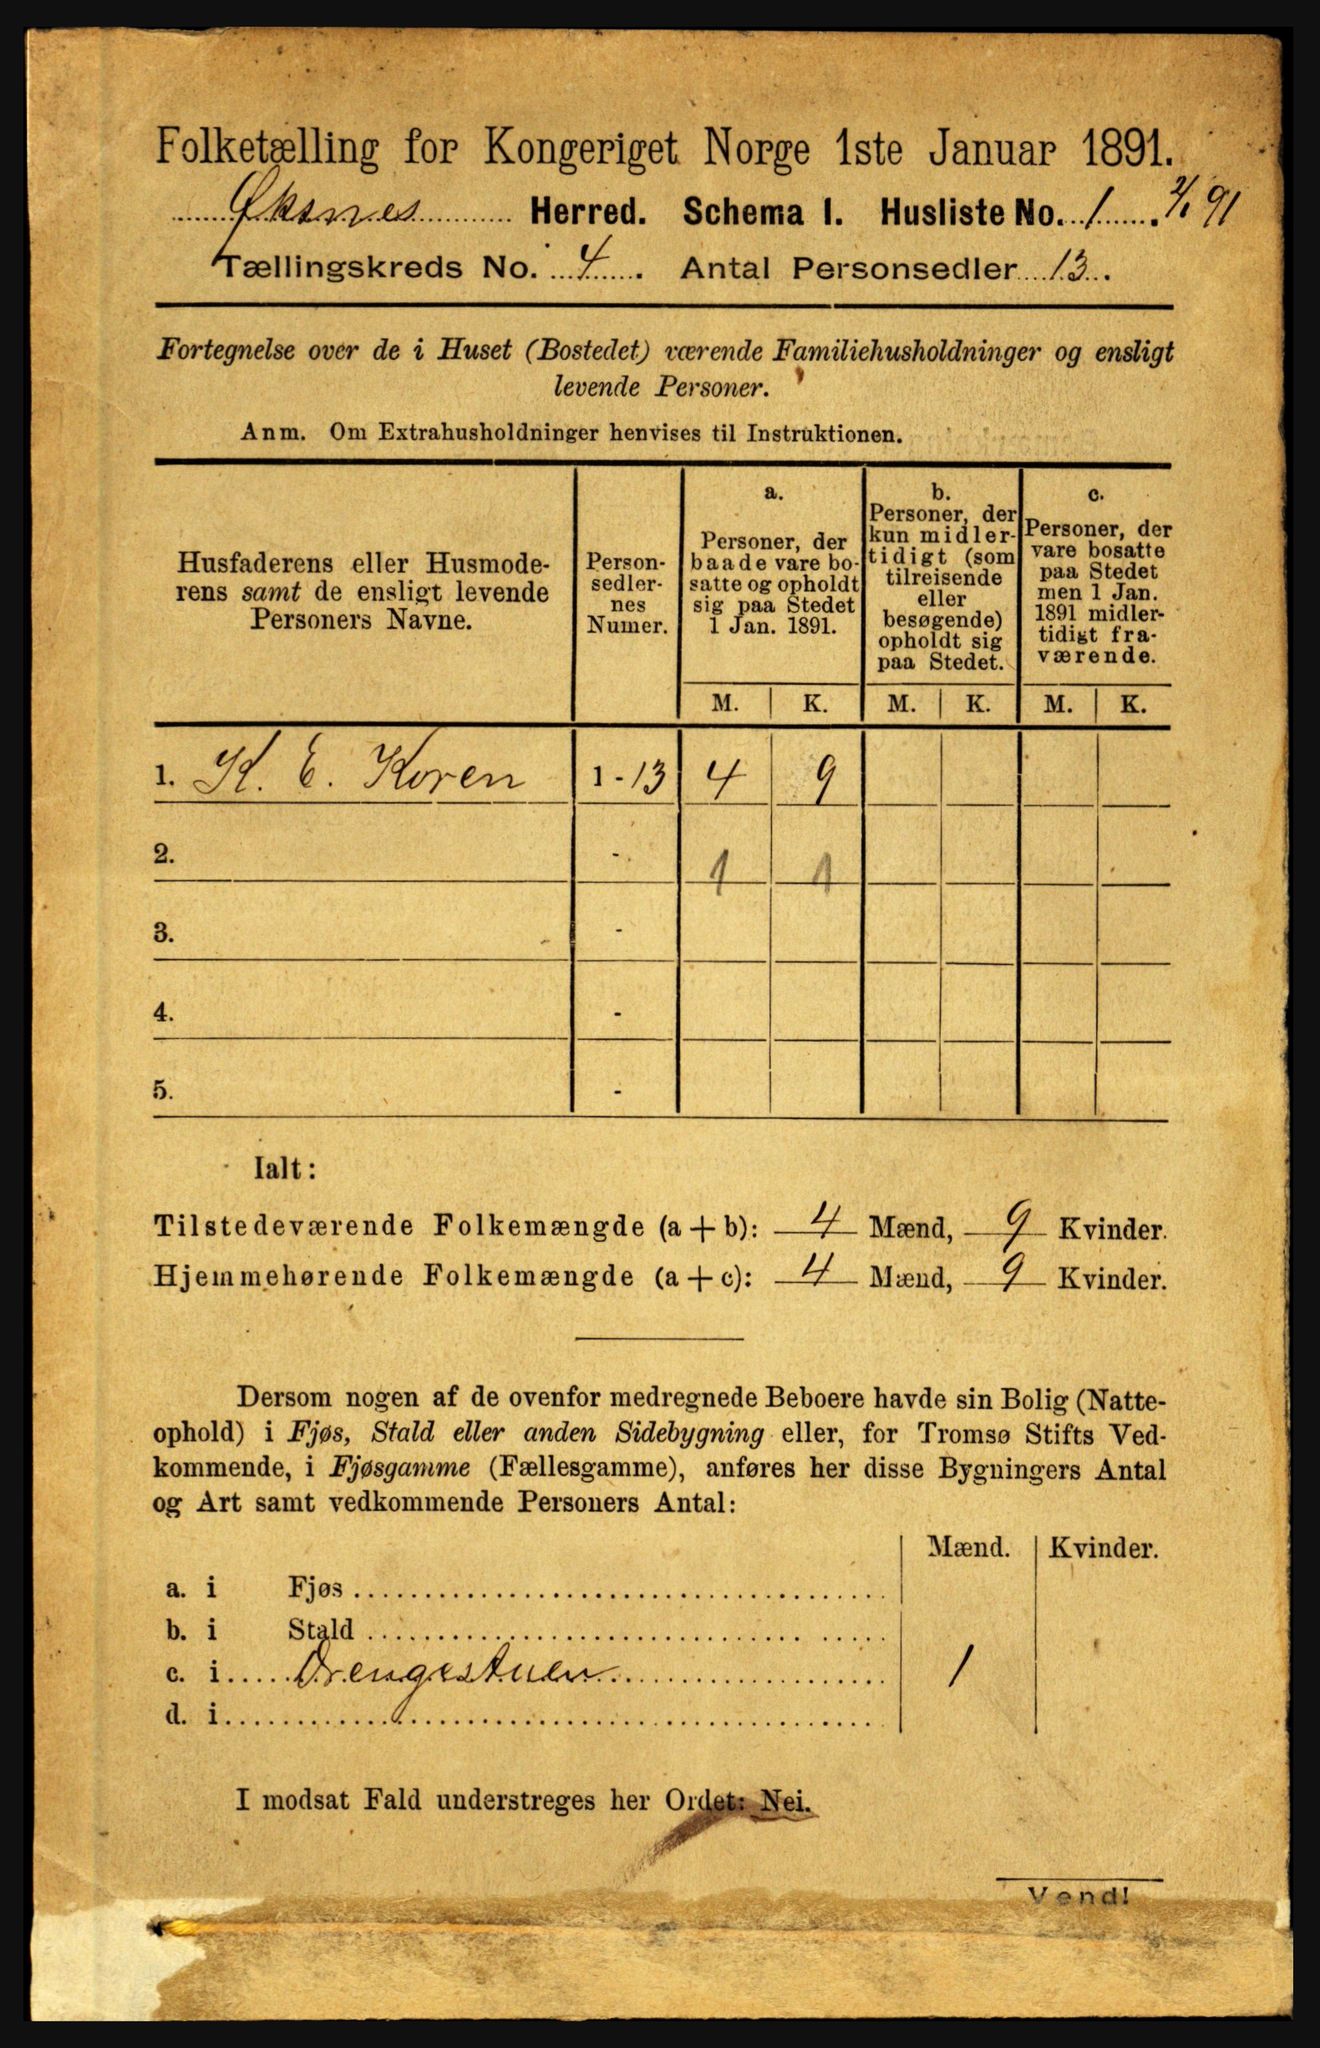 Folketælling for Kongeriget Norge 1ste Januar 1891.
Øksnes Herred. Schema I. Husliste No. 1. 2/1 91
Tællingskreds No. 4. Antal Personsedler 13.
Fortegnelse over de i Huset (Bostedet) værende Familiehusholdninger og ensligt
levende Personer.
Anm. Om Extrahusholdninger henvises til Instruktionen.
Husfaderens eller Husmode-
rens samt de ensligt levende
Personers Navne.
Person-
sedler-
nes
Numer.
a.
Personer, der
baade vare bo-
satte og opholdt
sig paa Stedet
1 Jan. 1891.
b.
Personer, der
kun midler-
tidigt (som
tilreisende
eller
besøgende)
opholdt sig
paa Stedet.
c.
Personer, der
vare bosatte
paa Stedet
men 1 Jan.
1891 midler-
tidigt fra-
værende.
M. K. M. K. M. K.
1. K. E. Koren 1 - 13 4 9
2. - 1 1
3. -
4. -
5. -
Ialt:
Tilstedeværende Folkemængde (a + b): 4 Mænd, 9 Kvinder.
Hjemmehørende Folkemængde (a + c): 4 Mænd, 9 Kvinder.
Dersom nogen af de ovenfor medregnede Beboere havde sin Bolig (Natte-
ophold) i Fjøs, Stald eller anden Sidebygning eller, for Tromsø Stifts Ved-
kommende, i Fjøsgamme (Fællesgamme), anføres her disse Bygningers Antal
og Art samt vedkommende Personers Antal:
Mænd. Kvinder.
a. i Fjøs
b. i Stald
c. i Drengestuen 1
d. i
I modsat Fald understreges her Ordet: Nei.
Vend!